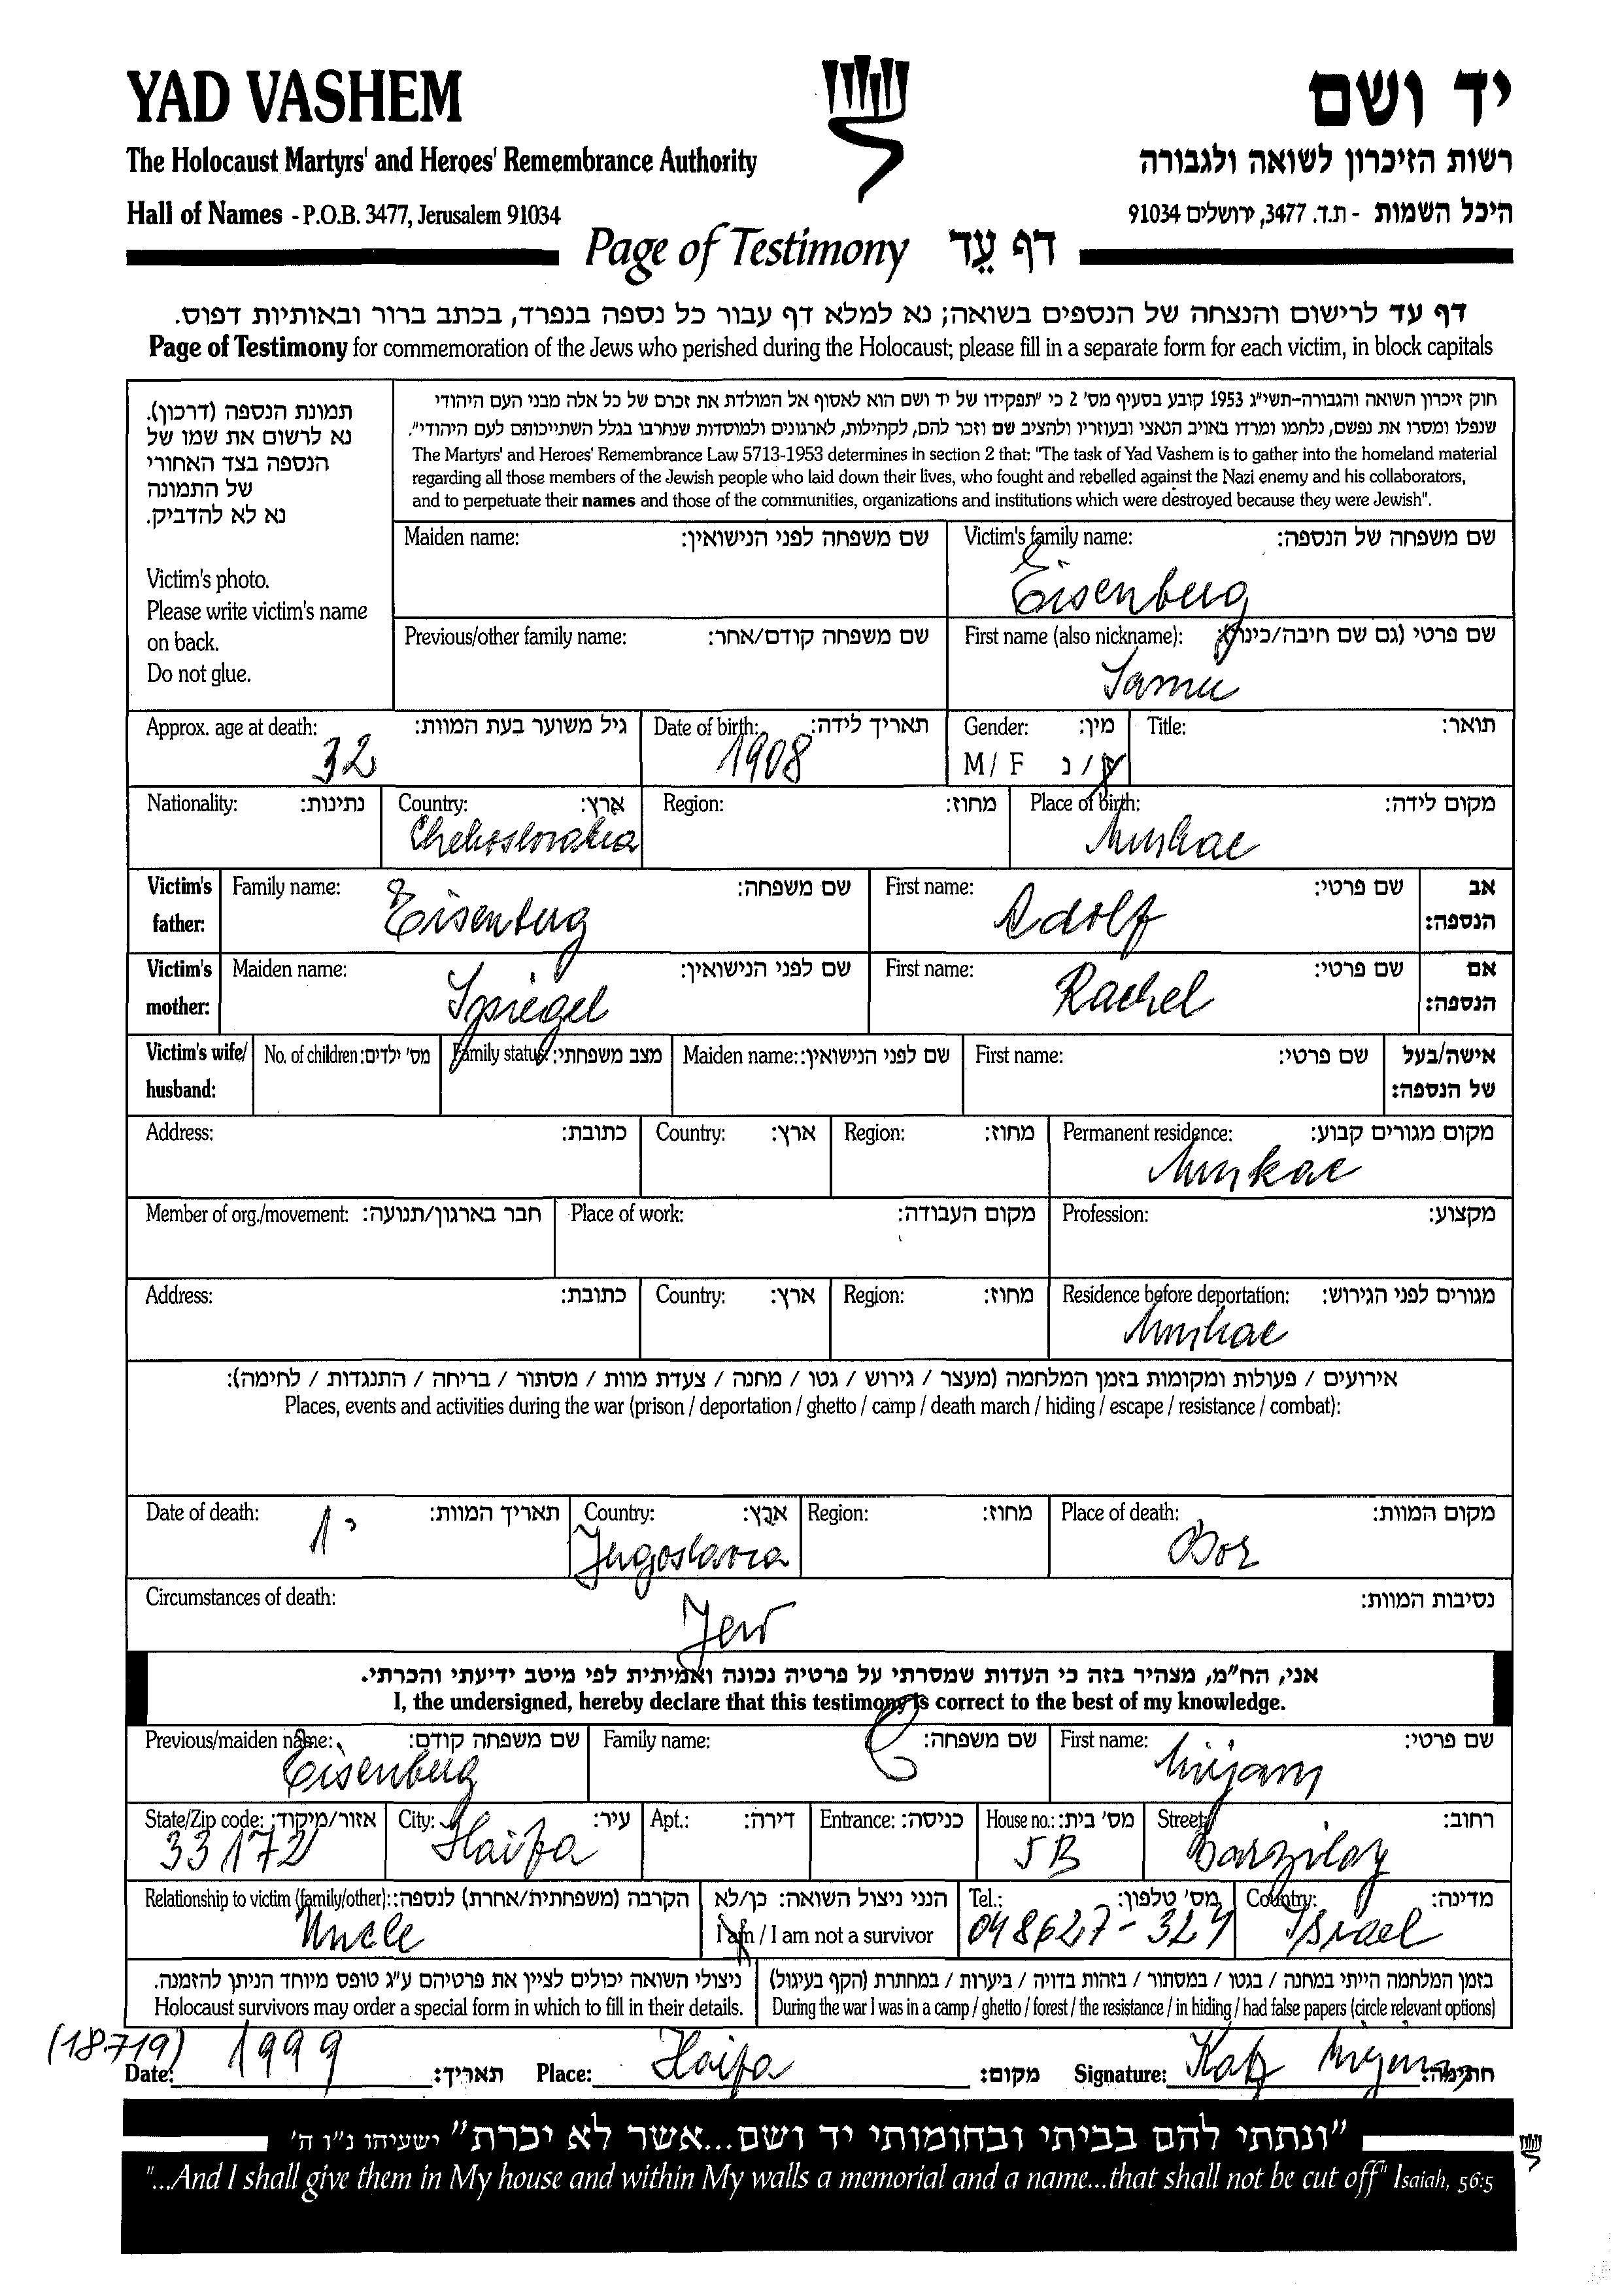 YAD VASHEM
יד ושם
The Holocaust Martyrs' and Heroes' Remembrance Authority
רשות הזיכרון לשואה ולגבורה
Hall of Names - P.O.B. 3477, Jerusalem 91034
היכל השמות - ת.ד. 3477, ירושלים 91034
Page of Testimony דף עֵד
דף עד לרישום והנצחה של הנספים בשואה; נא למלא דף עבור כל נספה בנפרד, בכתב ברור ובאותיות דפוס.
Page of Testimony for commemoration of the Jews who perished during the Holocaust; please fill in a separate form for each victim, in block capitals
תמונת הנספה (דרכון).
נא לרשום את שמו של
הנספה בצד האחורי
של התמונה
נא לא להדביק.
Victim's photo.
Please write victim's name
on back.
Do not glue.
חוק זיכרון השואה והגבורה-תשי"ג 1953 קובע בסעיף מס' 2 כי "תפקידו של יד ושם הוא לאסוף אל המולדת את זכרם של כל אלה מבני העם היהודי
שנפלו ומסרו את נפשם, נלחמו ומרדו באויב הנאצי ובעוזריו ולהציב שם וזכר להם, לקהילות, לארגונים ולמוסדות שנחרבו בגלל השתייכותם לעם היהודי".
The Martyrs' and Heroes' Remembrance Law 5713-1953 determines in section 2 that: "The task of Yad Vashem is to gather into the homeland material
regarding all those members of the Jewish people who laid down their lives, who fought and rebelled against the Nazi enemy and his collaborators,
and to perpetuate their names and those of the communities, organizations and institutions which were destroyed because they were Jewish".
Maiden name: שם משפחה לפני הנישואין:
Victim's family name: שם משפחה של הנספה:
Eisenberg
Previous/other family name: שם משפחה קודם/אחר:
First name (also nickname): שם פרטי (גם שם חיבה/כינוי):
Samu
Approx. age at death: גיל משוער בעת המוות:
32
Date of birth: תאריך לידה:
1908
Gender: מין:
M / F ז / נ
Title: תואר:
Nationality: נתינות:
Country: ארץ:
Chehoslovakia
Region: מחוז:
Place of birth: מקום לידה:
Munkac
Victim's father: Family name: שם משפחה:
Eisenberg
First name: שם פרטי: אב הנספה:
Adolf
Victim's mother: Maiden name: שם לפני הנישואין:
Spiegel
First name: שם פרטי: אם הנספה:
Rachel
Victim's wife/ husband: No. of children: מס' ילדים: Family status: מצב משפחתי: Maiden name: שם לפני הנישואין: First name: שם פרטי: אישה/בעל של הנספה:
Address: כתובת: Country: ארץ: Region: מחוז: Permanent residence: מקום מגורים קבוע:
Munkac
Member of org./movement: חבר בארגון/תנועה: Place of work: מקום העבודה: Profession: מקצוע:
Address: כתובת: Country: ארץ: Region: מחוז: Residence before deportation: מגורים לפני הגירוש:
Munkac
אירועים / פעולות ומקומות בזמן המלחמה (מעצר / גירוש / גטו / מחנה / צעדת מוות / מסתור / בריחה / התנגדות / לחימה):
Places, events and activities during the war (prison / deportation / ghetto / camp / death march / hiding / escape / resistance / combat):
Date of death: תאריך המוות:
Country: ארץ:
Jugoslavia
Region: מחוז:
Place of death: מקום המוות:
Bor
Circumstances of death: נסיבות המוות:
Jew
אני, הח"מ, מצהיר בזה כי העדות שמסרתי על פרטיה נכונה ואמיתית לפי מיטב ידיעתי והכרתי.
I, the undersigned, hereby declare that this testimony is correct to the best of my knowledge.
Previous/maiden name: שם משפחה קודם:
Eisenberg
Family name: שם משפחה:
First name: שם פרטי:
Mirjam
State/Zip code: אזור/מיקוד:
33172
City: עיר:
Haifa
Apt.: דירה: Entrance: כניסה: House no.: מס' בית:
5B
Street: רחוב:
Barzilay
Relationship to victim (family/other): הקרבה (משפחתית/אחרת) לנספה:
Uncle
הנני ניצול השואה: כן/לא
I am / I am not a survivor
Tel.: מס' טלפון:
048627-324
Country: מדינה:
Israel
ניצולי השואה יכולים לציין את פרטיהם ע"ג טופס מיוחד הניתן להזמנה.
Holocaust survivors may order a special form in which to fill in their details.
בזמן המלחמה הייתי במחנה / בגטו / במסתור / בזהות בדויה / ביערות / במחתרת (הקף בעיגול)
During the war I was in a camp / ghetto / forest / the resistance / in hiding / had false papers (circle relevant options)
(18719)
Date: 1999 תאריך: Place: Haifa מקום: Signature: Katz Mirjam חתימה:
"ונתתי להם בביתי ובחומותי יד ושם...אשר לא יכרת" ישעיהו נ"ו ה'
"...And I shall give them in My house and within My walls a memorial and a name...that shall not be cut off" Isaiah, 56:5